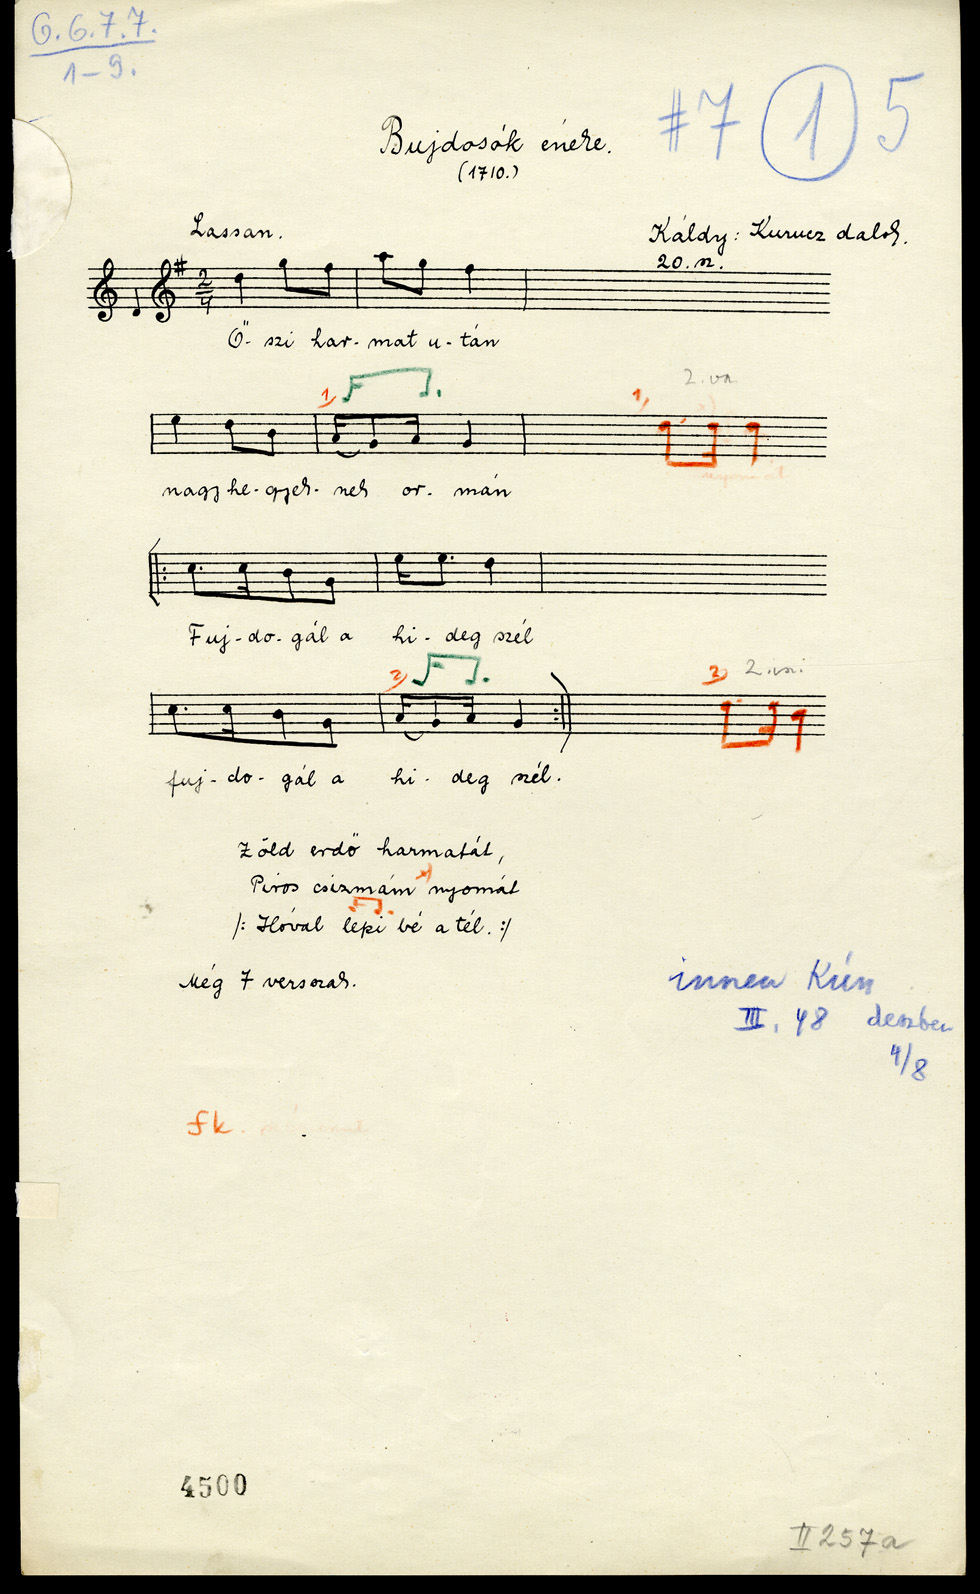 6.6.7.7.
1-9.
#7 1 5
Bujdosók éneke.
(1710.)
Lassan.
Káldy: Kurucz dalok.
20. sz.
2
4
Ő- szi har- mat u- tán
1)
1,
nagy he- gyek- nek or- mán
Fuj- do- gál a hi- deg szél
2)
fuj- do- gál a hi- deg szél.
Zöld erdő harmatát,
Piros csizmám nyomát
/: Hóval lepi bé a tél. :/
Még 7 versszak.
innen Kún
III. 48
4/8
fk.
4500
II 257a